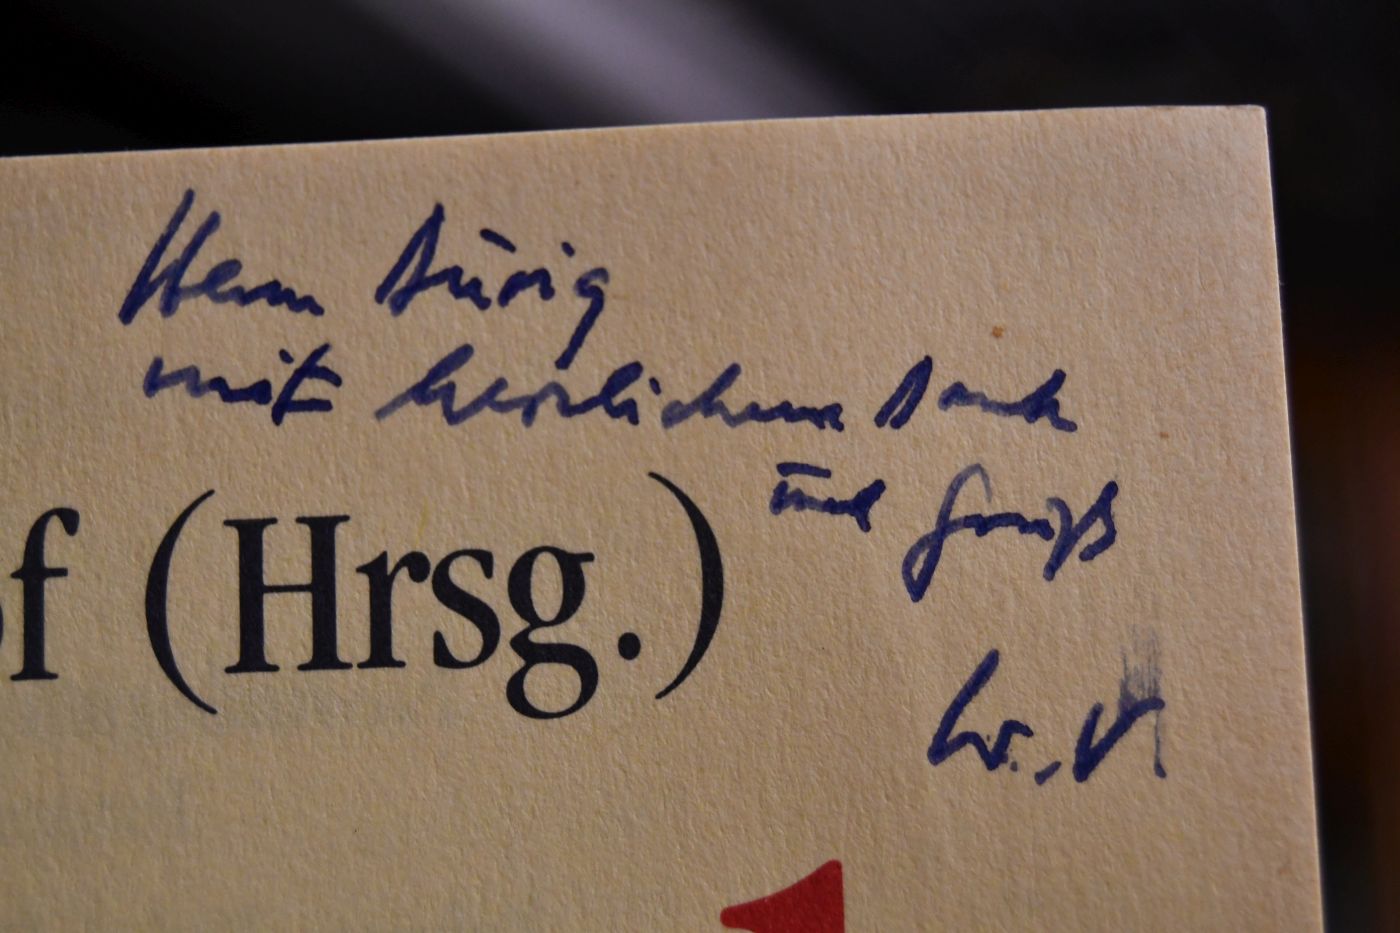 Herrn Dürig
mit herzlichem Dank
und Gruß
f (Hrsg.)